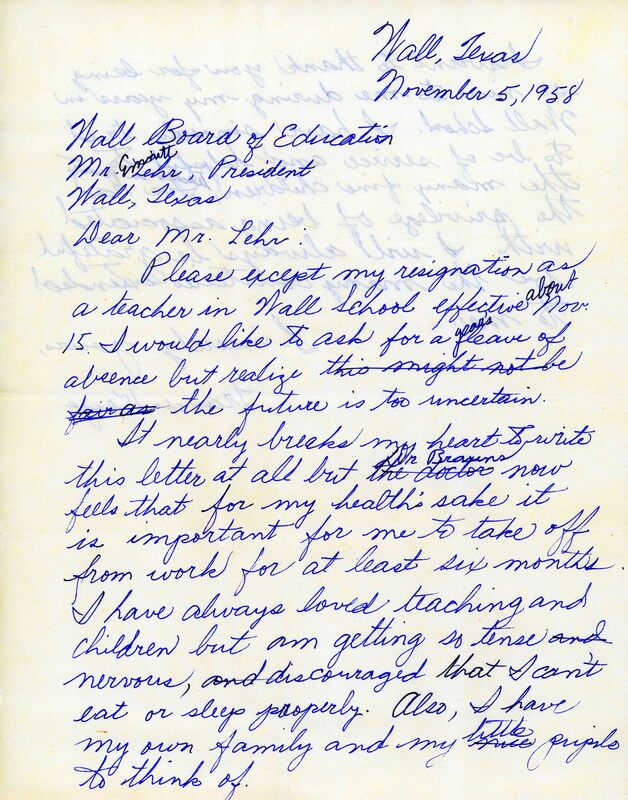 Wall, Texas
November 5, 1958
Wall Board of Education
Mr. Emmitt Lehr, President
Wall, Texas
Dear Mr. Lehr:
Please except my resignation as
a teacher in Wall School effective about Nov.
15. I would like to ask for a years leave of
absence but realize this might not be
fair as the future is too uncertain.
It nearly breaks my heart to write
this letter at all but the doctor Dr Brauns now
feels that for my health's sake it
is important for me to take off
from work for at least six months.
I have always loved teaching and
children but am getting so tense and
nervous, and discouraged that I can't
eat or sleep properly. Also, I have
my own family and my nice little pupils
to think of.